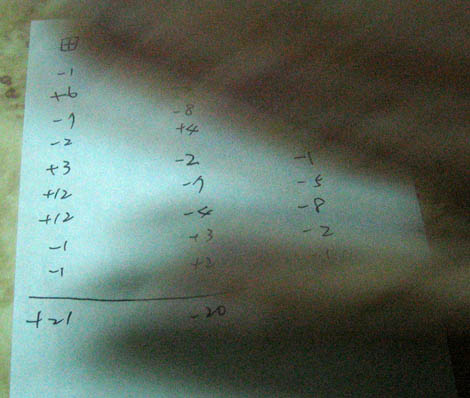 田
-1
+6
-7 -8
-2 +4
+3 -2 -1
+12 -7 -5
+12 -4 -8
-1 +3 -2
-1 +2 -1
+21 -20